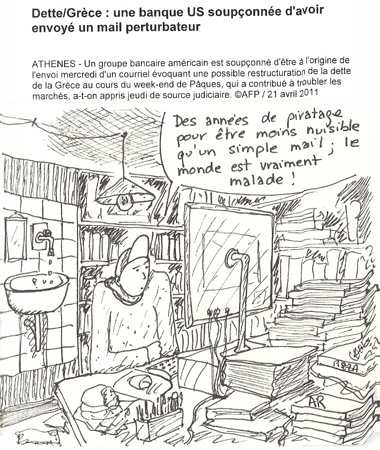 Dette/Grèce : une banque US soupçonnée d'avoir
envoyé un mail perturbateur
ATHENES - Un groupe bancaire américain est soupçonné d'être à l'origine de
l'envoi mercredi d'un courriel évoquant une possible restructuration de la dette
de la Grèce au cours du week-end de Pâques, qui a contribué à troubler les
marchés, a-t-on appris jeudi de source judiciaire. ©AFP / 21 avril 2011
Des années de piratage
pour être moins nuisible
qu'un simple mail ; le
monde est vraiment
malade !
AR